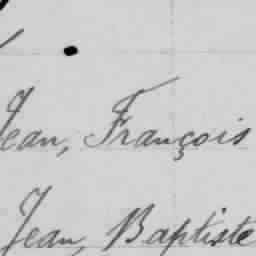 Jean, François
Jean, Baptiste